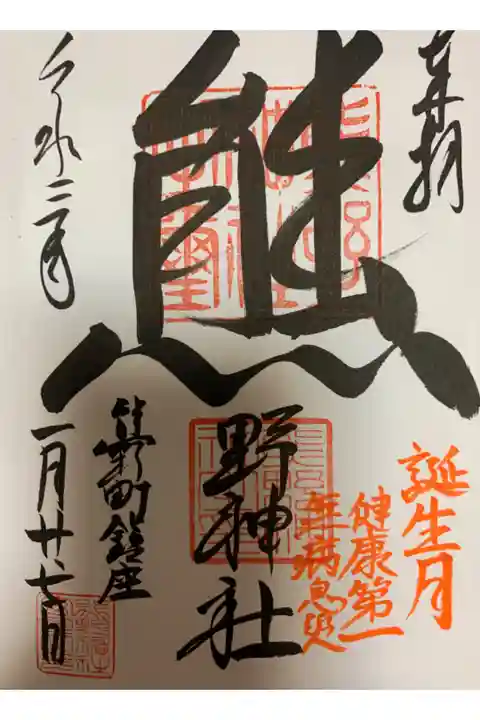 奉拝
誕生月
健康第一
無病息災
熊
野神社
町鎮座
令和三年
一月廿七日